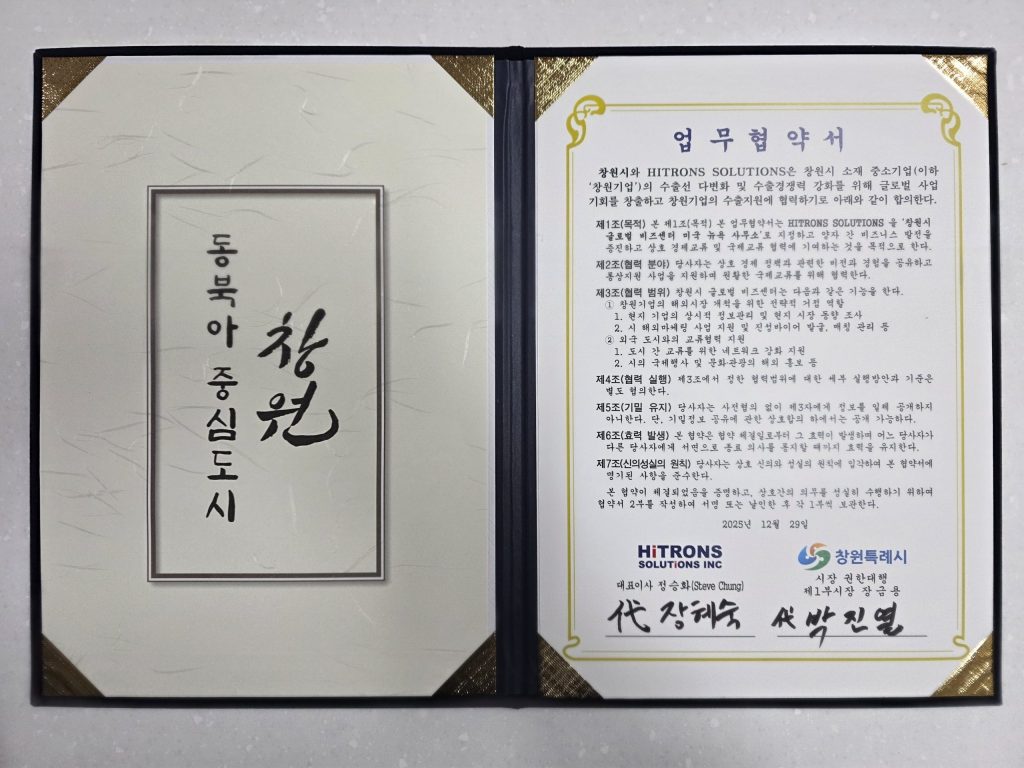 동북아 중심도시
창원
업무협약서
창원시와 HITRONS SOLUTIONS은 창원시 소재 중소기업(이하
'창원기업')의 수출선 다변화 및 수출경쟁력 강화를 위해 글로벌 사업
기회를 창출하고 창원기업의 수출지원에 협력하기로 아래와 같이 합의한다.
제1조(목적) 본 제1조(목적) 본 업무협약서는 HITRONS SOLUTIONS 을 '창원시
글로벌 비즈센터 미국 뉴욕 사무소'로 지정하고 양자 간 비즈니스 발전을
증진하고 상호 경제교류 및 국제교류 협력에 기여하는 것을 목적으로 한다.
제2조(협력 분야) 당사자는 상호 경제 정책과 관련한 비전과 경험을 공유하고
통상지원 사업을 지원하며 원활한 국제교류를 위해 협력한다.
제3조(협력 범위) 창원시 글로벌 비즈센터는 다음과 같은 기능을 한다.
① 창원기업의 해외시장 개척을 위한 전략적 거점 역할
1. 현지 기업의 상시적 정보관리 및 현지 시장 동향 조사
2. 시 해외마케팅 사업 지원 및 진성바이어 발굴, 매칭 관리 등
② 외국 도시와의 교류협력 지원
1. 도시 간 교류를 위한 네트워크 강화 지원
2. 시의 국제행사 및 문화관광의 해외 홍보 등
제4조(협력 실행) 제3조에서 정한 협력범위에 대한 세부 실행방안과 기준은
별도 협의한다.
제5조(기밀 유지) 당사자는 사전협의 없이 제3자에게 정보를 일체 공개하지
아니한다. 단, 기밀정보 공유에 관한 상호합의 하에서는 공개 가능하다.
제6조(효력 발생) 본 협약은 협약 체결일로부터 그 효력이 발생하며 어느 당사자가
다른 당사자에게 서면으로 종료 의사를 통지할 때까지 효력을 유지한다.
제7조(신의성실의 원칙) 당사자는 상호 신의와 성실의 원칙에 입각하여 본 협약서에
명기된 사항을 준수한다.
본 협약이 체결되었음을 증명하고, 상호간의 의무를 성실히 수행하기 위하여
협약서 2부를 작성하여 서명 또는 날인한 후 각 1부씩 보관한다.
2025년 12월 29일
HiTRONS
SOLUTIONS INC
대표이사 정승화(Steve Chung)
代 장혜숙
창원특례시
시장 권한대행
제1부시장 장금용
代 박진열